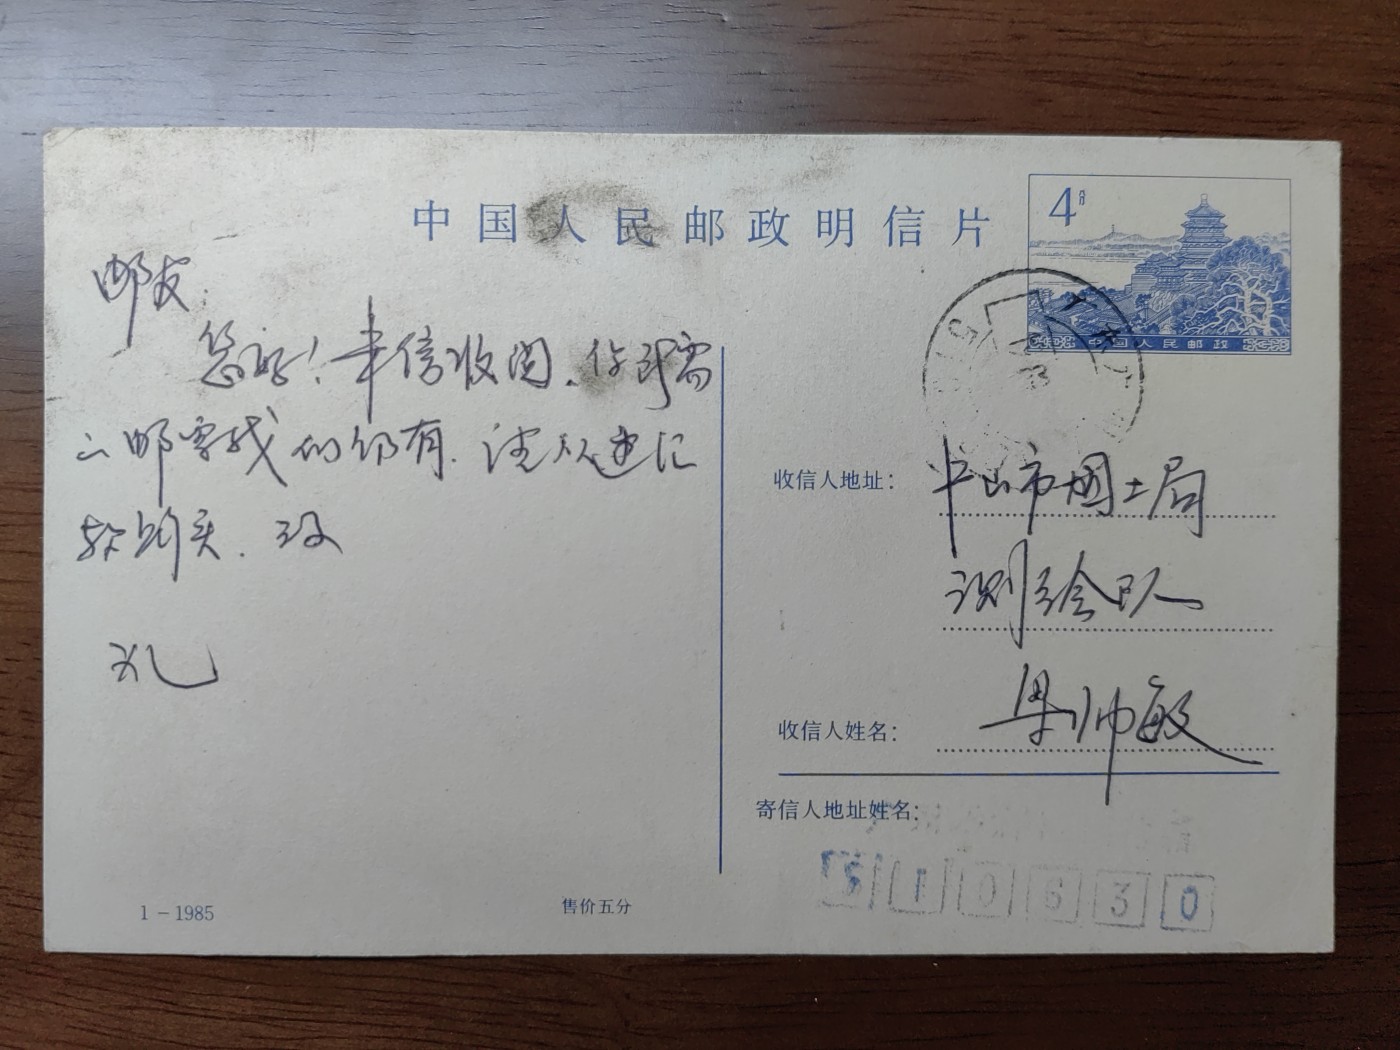 中国人民邮政明信片
4分
中国人民邮政
邮友:
您好!来信收阅.你所需
之邮票我们仍有.请从速汇
款购买.致
礼
收信人地址:
中山市国土局
测绘队
收信人姓名:
梁帅敏
寄信人地址姓名:
510630
1-1985
售价五分